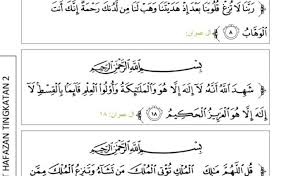 ﴿ رَبَّنَا لَا تُزِغْ قُلُوبَنَا بَعْدَ إِذْ هَدَيْتَنَا وَهَبْ لَنَا مِن لَّدُنكَ رَحْمَةً إِنَّكَ أَنتَ
الْوَهَّابُ ٨ ﴾ آل عمران: ٨
بِسْمِ اللَّهِ الرَّحْمَٰنِ الرَّحِيمِ
﴿ شَهِدَ اللَّهُ أَنَّهُ لَا إِلَٰهَ إِلَّا هُوَ وَالْمَلَائِكَةُ وَأُولُوا الْعِلْمِ قَائِمًا بِالْقِسْطِ لَا
إِلَٰهَ إِلَّا هُوَ الْعَزِيزُ الْحَكِيمُ ١٨ ﴾ آل عمران: ١٨
بِسْمِ اللَّهِ الرَّحْمَٰنِ الرَّحِيمِ
﴿ قُلِ اللَّهُمَّ مَالِكَ الْمُلْكِ تُؤْتِي الْمُلْكَ مَن تَشَاءُ وَتَنزِعُ الْمُلْكَ مِمَّن
HAFAZAN TINGKATAN 2